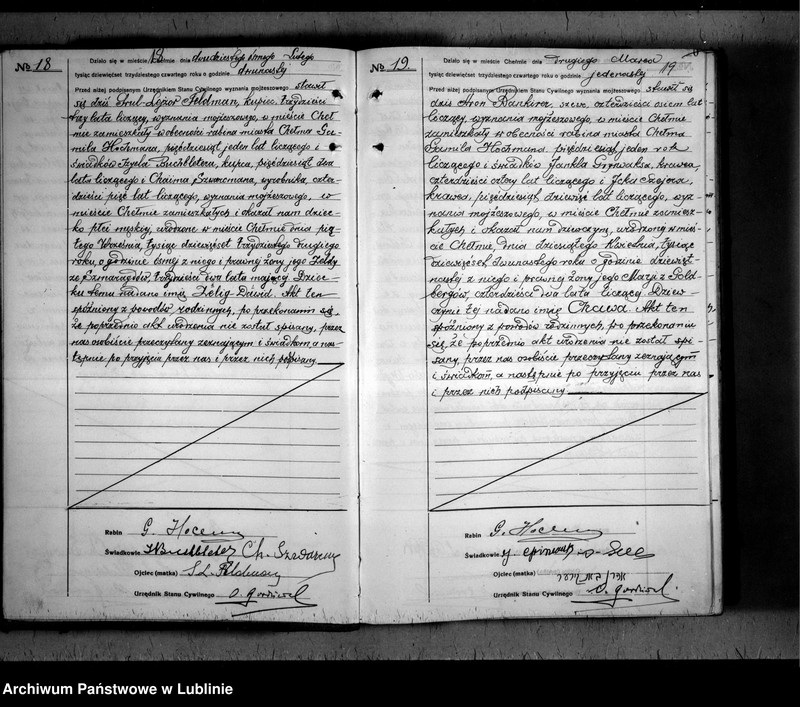 No 18
Działo się w mieście Chełmie dnia dwudziestego ósmego Lutego
tysiąc dziewięćset trzydziestego czwartego roku o godzinie dwunastej
Przed niżej podpisanym Urzędnikiem Stanu Cywilnego wyznania mojżeszowego stawił
się dziś Srul Lejzor Feldman, kupiec, trzydzieści
trzy lata liczący, wyznania mojżeszowego, w mieście Cheł-
mie zamieszkały w obecności rabina miasta Chełma Ga-
mila Hochmana, pięćdziesiąt jeden lat liczącego i
świadków Buchbletera, kupca, pięćdziesiąt dwa
lata liczącego i Chaima wyrobnika, czter-
dzieści pięć lat liczącego, wyznania mojżeszowego, w
mieście Chełmie zamieszkałych i okazał nam dziec-
ko płci męskiej, urodzone w mieście Chełmie dnia pią-
tego Września, tysiąc dziewięćset trzydziestego drugiego
roku, o godzinie ósmej z niego i prawnej żony jego
ze Szmaragdów, trzydzieści dwa lata mającej Dziec-
ku temu nadano imię Zelig-Dawid. Akt ten
spóźniony z powodów rodzinnych, po przekonaniu się,
że poprzednio akt urodzenia nie został spisany, przez
nas osobiście przeczytany zeznającym i świadkom, a na-
stępnie po przyjęciu przez nas i przez nich podpisany
Rabin G. Hochman
Świadkowie
Ojciec (matka) S. L. Feldman
Urzędnik Stanu Cywilnego
No 19
Działo się w mieście Chełmie dnia Drugiego Marca
tysiąc dziewięćset trzydziestego czwartego roku o godzinie jedenastej
19
Przed niżej podpisanym Urzędnikiem Stanu Cywilnego wyznania mojżeszowego stawił się
dziś Aron szewc, czterdzieści osiem lat
liczący, wyznania mojżeszowego, w mieście Chełmie
zamieszkały w obecności rabina miasta Chełma
Gamila Hochmana pięćdziesiąt jeden rok
liczącego i świadków Jankla krawca,
czterdzieści cztery lat liczącego i Icka
krawca, pięćdziesiąt dziewięć lat liczącego, wyz-
nania mojżeszowego, w mieście Chełmie zamiesz-
kałych i okazał nam dziewczynę, urodzoną w mieś-
cie Chełmie, dnia dziesiątego Kwietnia, tysiąc
dziewięćset dwunastego roku o godzinie dziewięt-
nastej z niego i prawnej żony jego Marji z Gold-
bergów, czterdzieści dwa lata liczącej Dziew-
czynie tej nadano imię Chawa. Akt ten
spóźniony z powodów rodzinnych, po przekonaniu
się, że poprzednio akt urodzenia nie został spi-
sany, przez nas osobiście przeczytany zeznającym
i świadkom, a następnie po przyjęciu przez nas
i przez nich podpisany
Rabin G. Hochman
Świadkowie
Ojciec (matka)
Urzędnik Stanu Cywilnego
Archiwum Państwowe w Lublinie